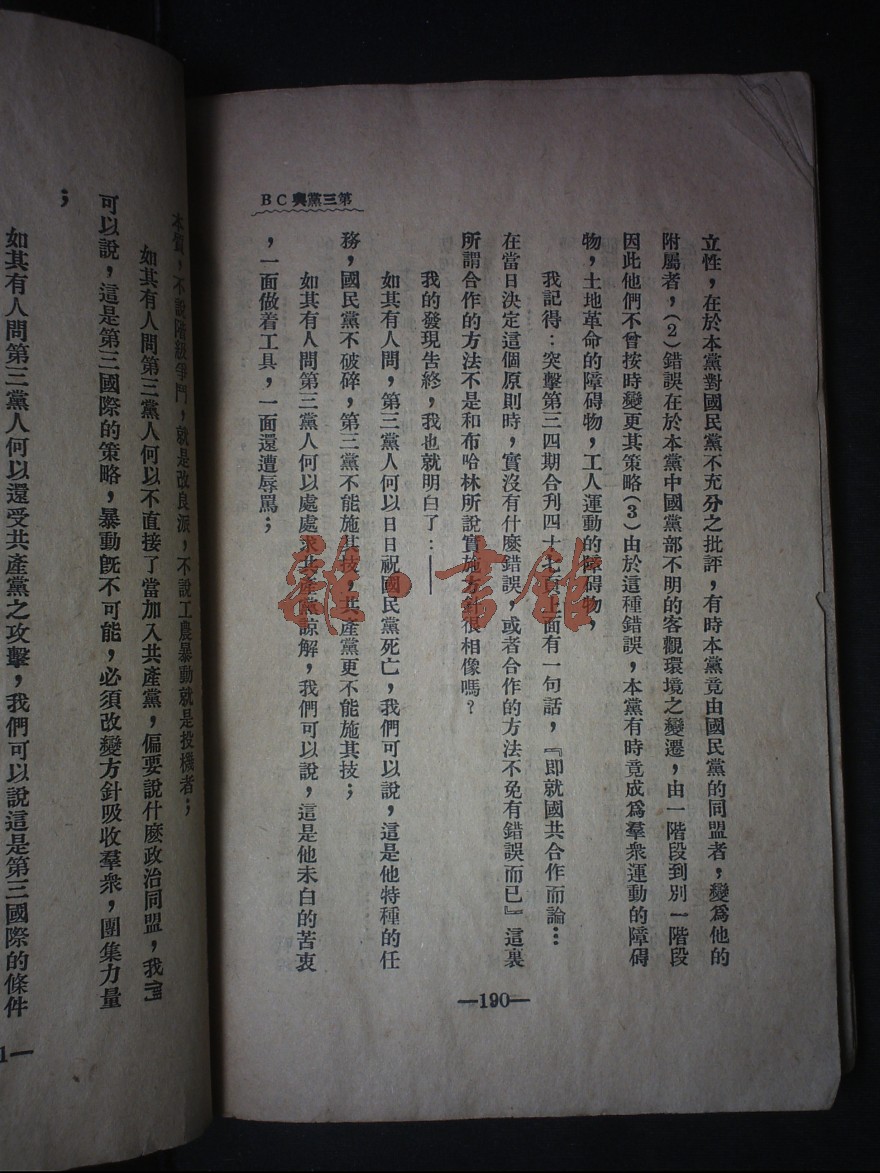 第三黨與BC
立性，在於本黨對國民黨不充分之批評，有時本黨竟由國民黨的同盟者，變為他的
附屬者，(2)錯誤在於本黨中國黨部不明的客觀環境之變遷，由一階段到別一階段
因此他們不曾按時變更其策略(3)由於這種錯誤，本黨有時竟成爲羣衆運動的障碍
物，土地革命的障碍物，工人運動的障碍物，
我記得：突擊第三四期合刋四十七頁上面有一句話，『即就國共合作而論…
在當日決定這個原則時，實沒有什麼錯誤，或者合作的方法不免有錯誤而已』這裏
所謂合作的方法不是和布哈林所說實施方針很相像嗎？
我的發現告終，我也就明白了：——
如其有人問，第三黨人何以日日祝國民黨死亡，我們可以說，這是他特種的任
務，國民黨不破碎，第三黨不能施其技，共產黨更不能施其技；
如其有人問第三黨人何以處處求共產黨諒解，我們可以說，這是他未白的苦衷
，一面做着工具，一面還遭辱罵；
—190—
本質，不說階級爭鬥，就是改良派，不說工農暴動就是投機者；
如其有人問第三黨人何以不直接了當加入共產黨，偏要說什麽政治同盟，我們
可以說，這是第三國際的策略，暴動旣不可能，必須改變方針吸收羣衆，團集力量
；
如其有人問第三黨人何以還受共產黨之攻擊，我們可以說這是第三國際的條件
1—
雜·書館